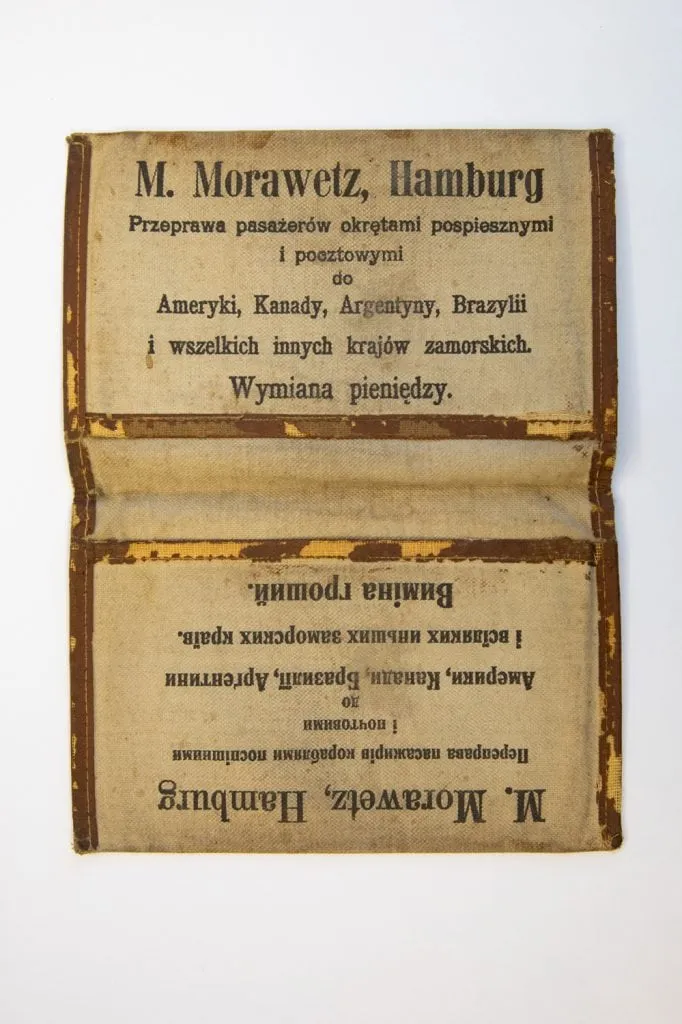 M. Morawetz, Hamburg
Przeprawa pasażerów okrętami pospiesznymi
i pocztowymi
do
Ameryki, Kanady, Argentyny, Brazylii
i wszelkich innych krajów zamorskich.
Wymiana pieniędzy.
M. Morawetz, Hamburg
Переправа пасажирів кораблями поспішними
і почтовими
до
Америки, Канади, Бразилії, Арґентини
і всїляких иньших заморских краів.
Виміна гроший.